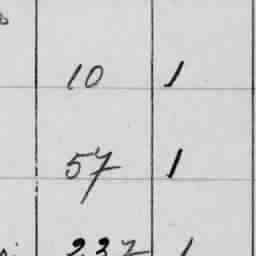 10 1
57 1
237 1